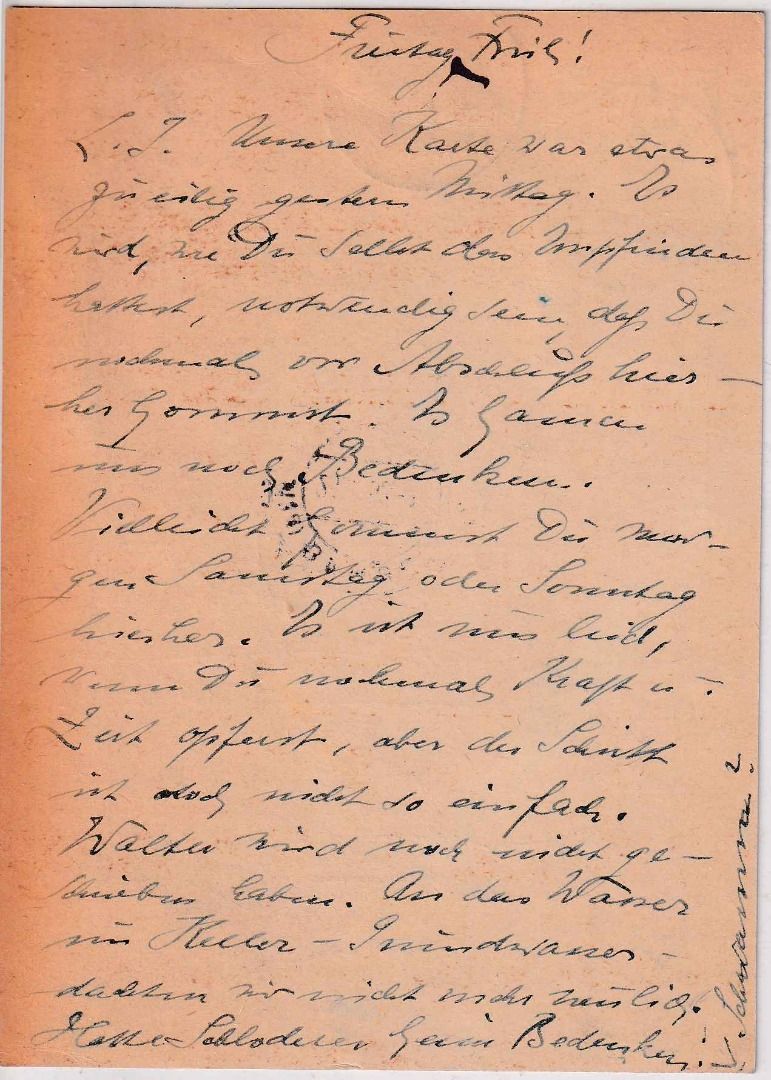 Freitag Früh!
L. J. Unsere Karte war etwas
zu eilig gestern Mittag. Es
wird, wie Du selbst das Empfinden
hattest, notwendig sein, daß Du
nochmals vor Abschluß hier-
her kommst. Es kamen
uns noch Bedenken.
Vielleicht kommst Du mor-
gen Samstag oder Sonntag
hierher. Es ist uns leid,
wenn Du nochmals Kraft u.
Zeit opferst, aber der Schritt
ist doch nicht so einfach.
Walter wird noch nicht ge-
schrieben haben. An das Wasser
im Keller – Grundwasser –
dachten wir nicht mehr neulich.
Hatte Schloderer kein Bedenken?
Schwamm?